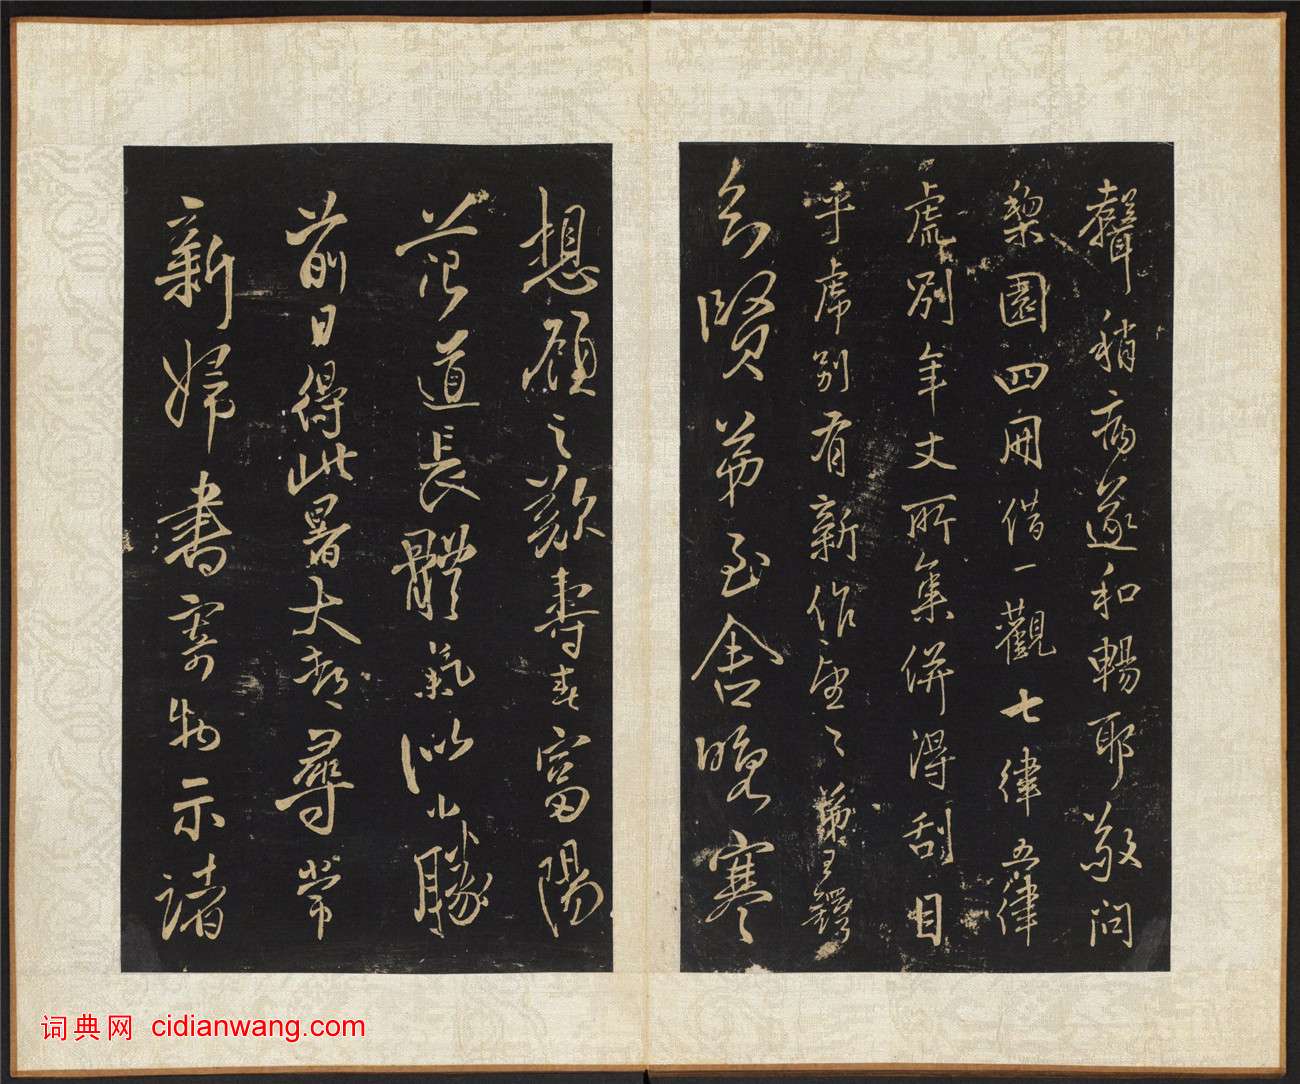 聲稍病遂和暢耶敬問
梨園四冊借一觀七律五律
虎別年丈所集併得刮目
乎虎別有新作望〻弟王鐸
賢弟至舍晚寒
想顧之歎壽春富陽
道長體氣似小勝
前日得此暑大都尋常
新婦書寄物示諸
词典网 cidianwang.com